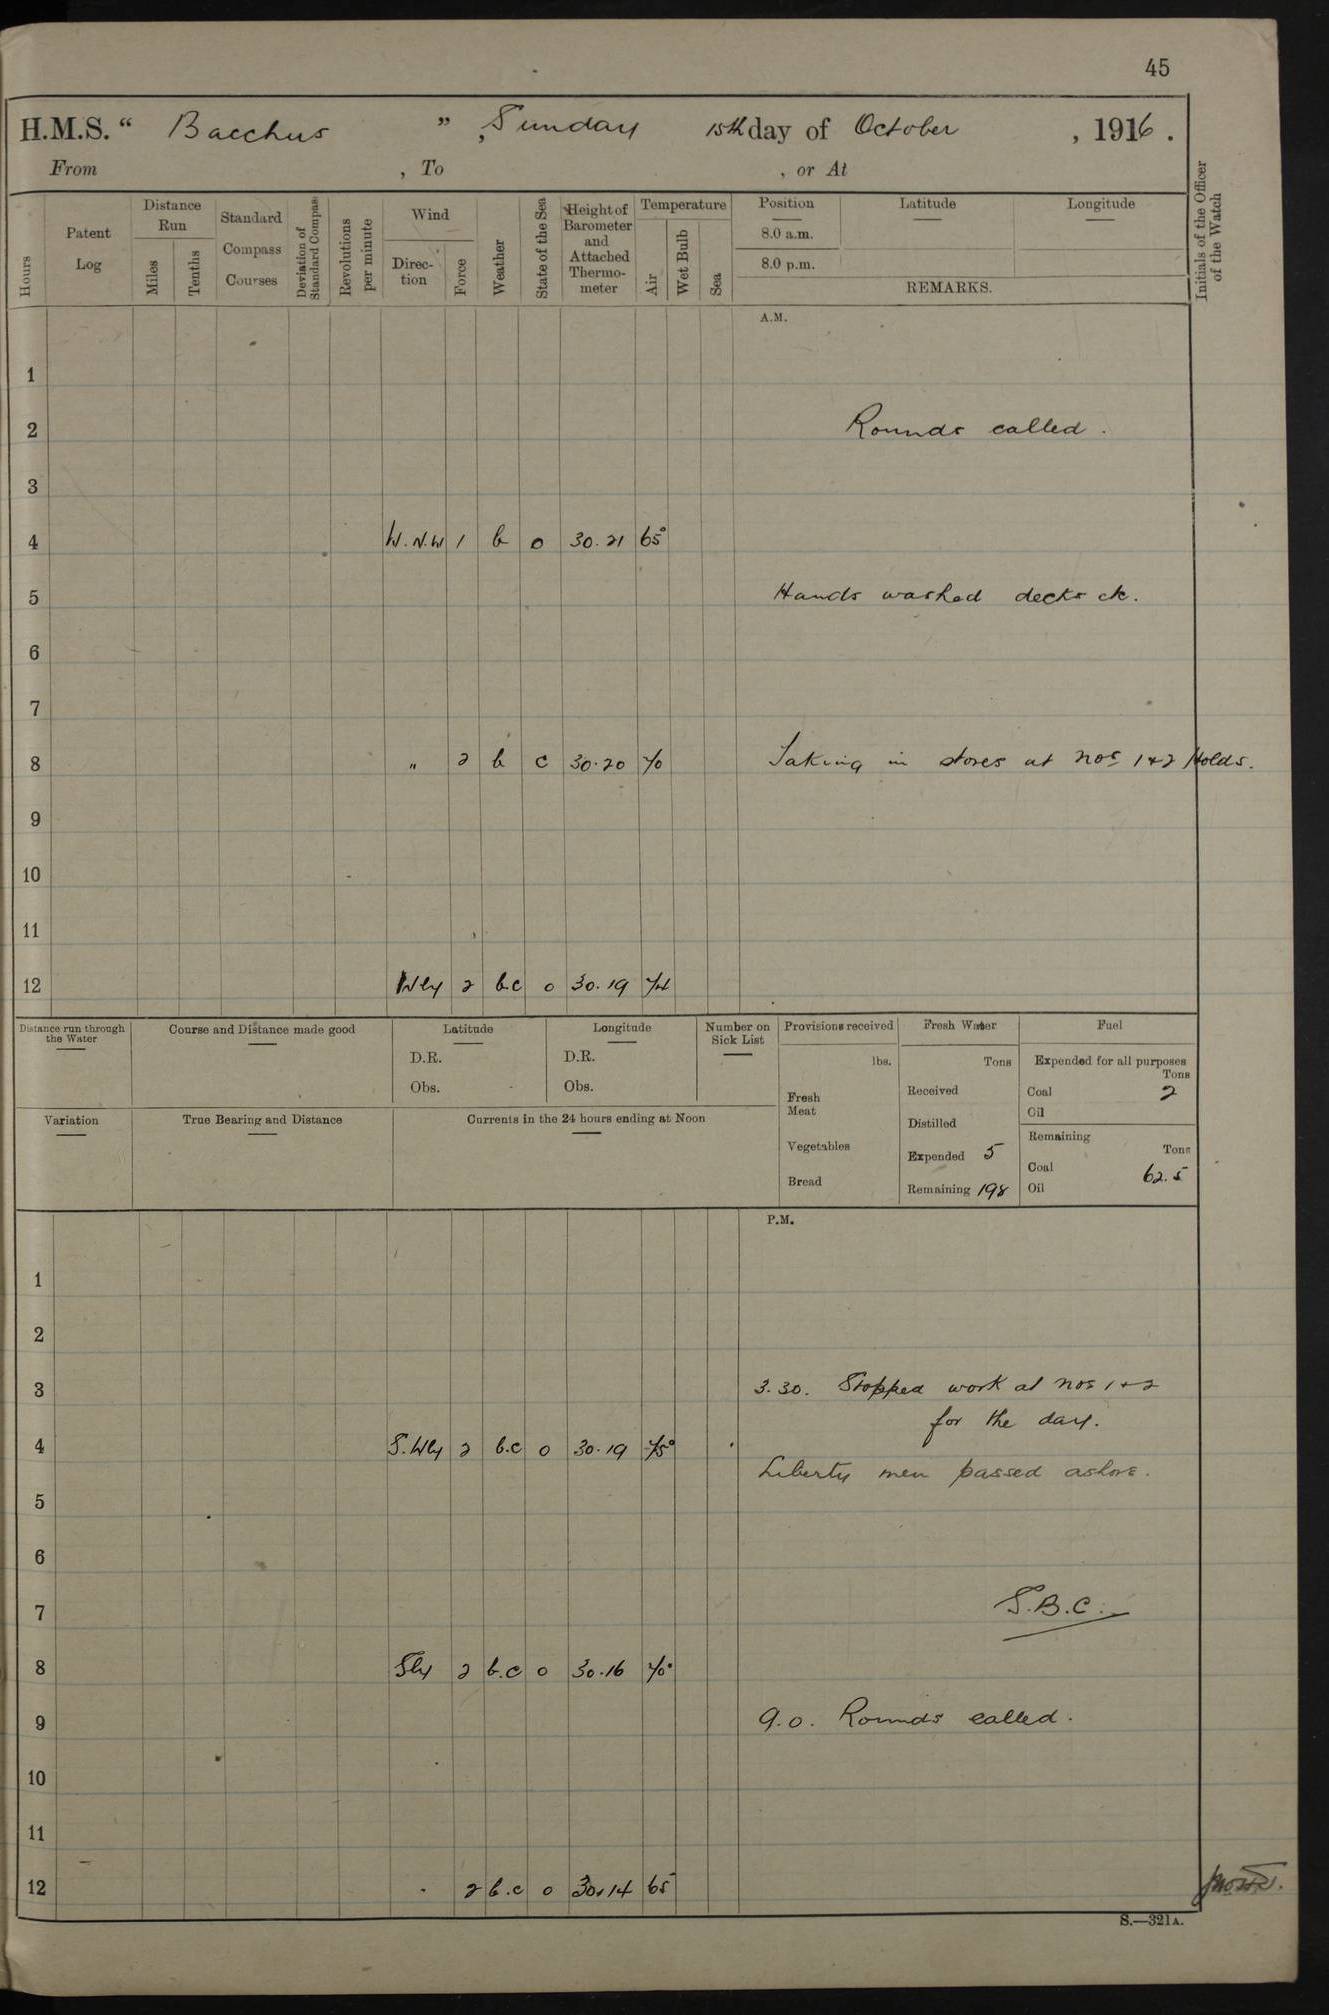 45
H.M.S. “ Bacchus ” , Sunday 15th day of October , 1916 .
From , To , or At
Hours
Patent Log
Distance Run
Miles
Tenths
Standard Compass Courses
Deviation of Standard Compass
Revolutions per minute
Wind
Direc-tion
Force
Weather
State of the Sea
Height of Barometer and Attached Thermo-meter
Temperature
Air
Wet Bulb
Sea
Position
8.0 a.m.
8.0 p.m.
Latitude
Longitude
REMARKS.
Initials of the Officer of the Watch
A.M.
1
2 Rounds called .
3
4 W.N.W 1 b 0 30.21 65°
5 Hands washed decks &c.
6
7
8 " 2 b c 30.20 70 Taking in stores at nos 1 & 2 Holds.
9
10
11
12 Wly 2 b.c 0 30.19 74
Distance run through the Water
Course and Distance made good
Latitude
D.R.
Obs.
Longitude
D.R.
Obs.
Number on Sick List
Provisions received
lbs.
Fresh Meat
Vegetables
Bread
Fresh Water
Tons
Received
Distilled
Expended 5
Remaining 198
Fuel
Expended for all purposes
Tons
Coal 2
Oil
Remaining
Tons
Coal 62.5
Oil
Variation
True Bearing and Distance
Currents in the 24 hours ending at Noon
P.M.
1
2
3 3.30. Stopped work at nos 1 & 2
for the day.
4 S.Wly 2 b.c 0 30.19 75°
Liberty men passed ashore.
5
6
7 S.B.C.
8 Sly 2 b.c 0 30.16 70°
9 9.0. Rounds called.
10
11
12 " 2 b.c 0 30.14 65
S.—321A.